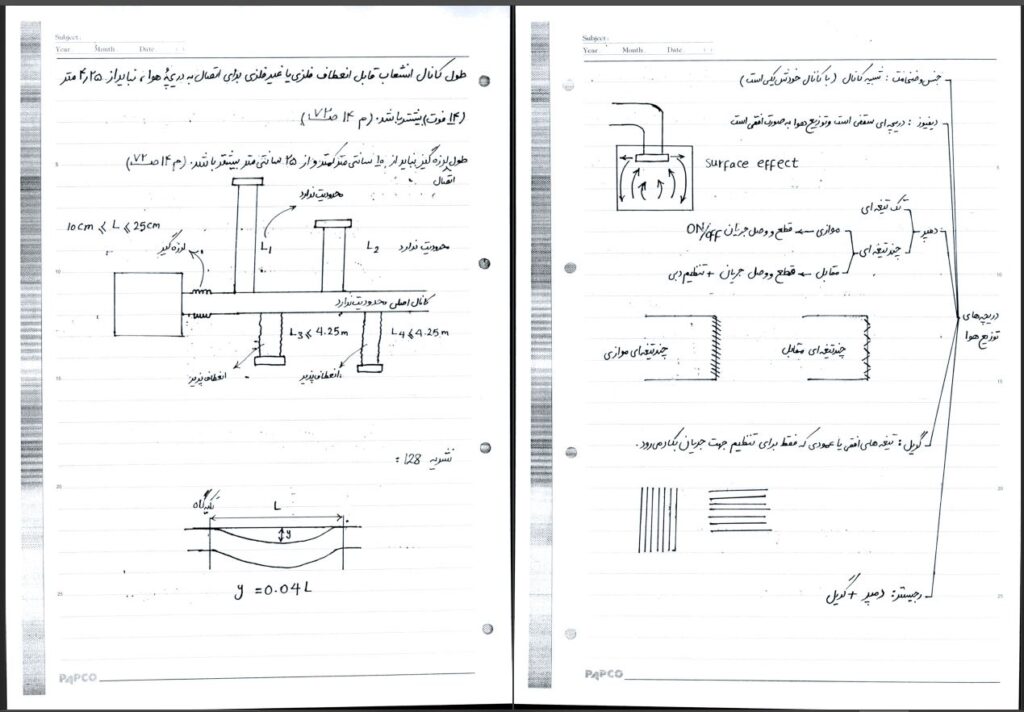 Subject:
Year. Month. Date.
طول کانال انشعاب قابل انعطاف فلزی یا غیرفلزی برای اتصال به دریچهٔ هوا، نباید از ۴٫۲۵ متر
(۱۴ فوت) بیشتر باشد. (م ۱۴ صـ ۷۲)
طول لرزه گیر نباید از ۱۰ سانتی متر کمتر و از ۲۵ سانتی متر بیشتر باشد. (م ۱۴ صـ ۷۲)
اتصال
محدودیت ندارد
10cm ≤ L ≤ 25cm
لرزه گیر
L₁
L₂ محدودیت ندارد
کانال اصلی محدودیت ندارد
L₃ ≤ 4.25m
L₄ ≤ 4.25m
انعطاف پذیر
انعطاف پذیر
نشریه 128 :
تکیه گاه
L
y
y = 0.04L
5
10
15
20
25
PAPCO
Subject:
Year. Month. Date.
جنس و ضخامت : شبیه کانال (با کانال خودش یکی است)
دیفیوزر : دریچه ای سقفی است و توزیع هوا به صورت افقی است
surface effect
تک تیغه ای
دمپر
چند تیغه ای
موازی ← قطع و وصل جریان ON/OFF
مقابل ← قطع و وصل جریان + تنظیم دبی
دریچه های
توزیع هوا
چند تیغه ای موازی
چند تیغه ای مقابل
گریل : تیغه های افقی یا عمودی که فقط برای تنظیم جهت جریان بکار می رود.
رجیستر: دمپر + گریل
5
10
15
20
25
PAPCO